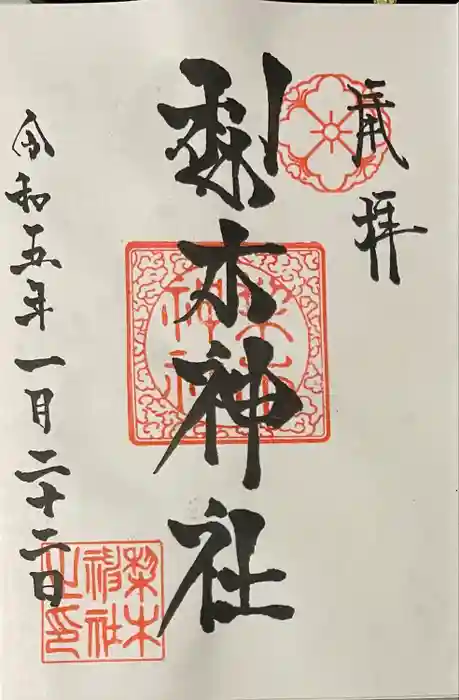 奉拝
梨木神社
梨木神社
令和五年一月二十二日
梨木
神社
之印